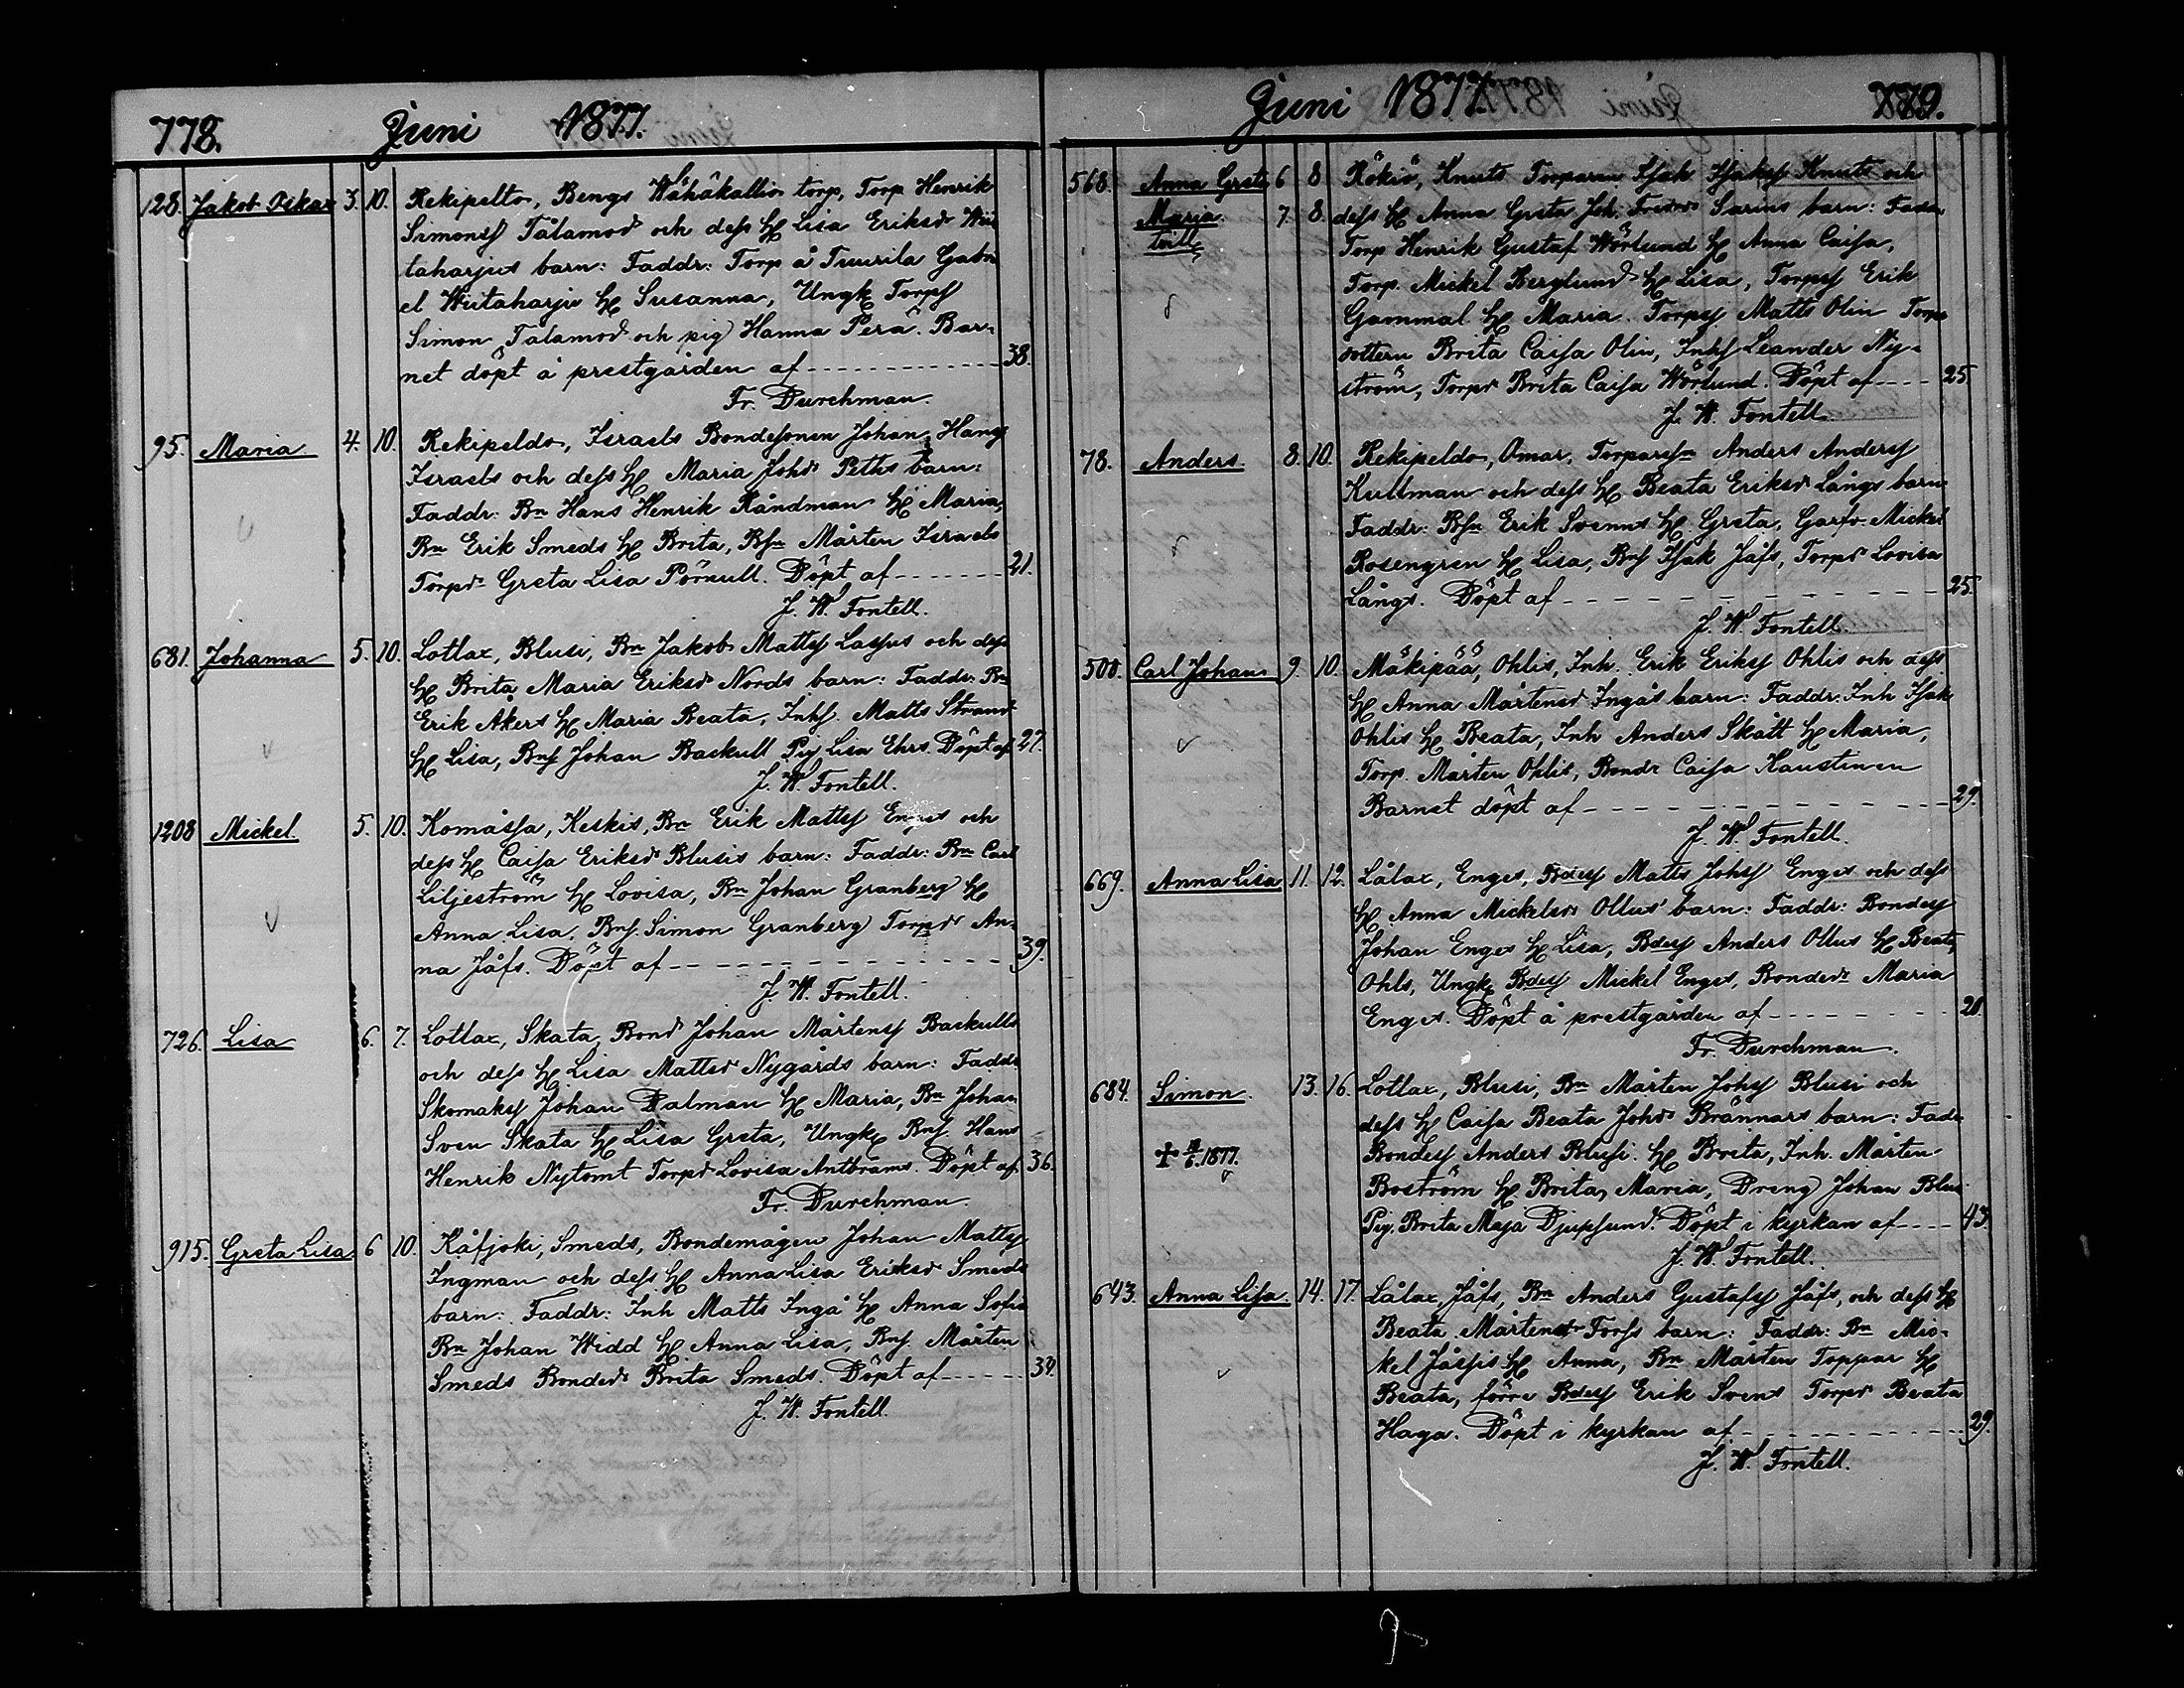 778. Juni 1877.
128. Jakob Oskar 3. 10. Rekipelto, Bengs Wähäkallio torp, Torp Henrik
Simonss Tålamod och dess H Lisa Eriksdr Wii
taharjus barn: Faddr: Torp å Tuurila Gabri
el Wiitaharju H Susanna, Ungk Torpss
Simon Tålamod och pig Hanna Perä. Bar-
net döpt å prestgården af 38.
Fr. Durchman.
95. Maria 4. 10. Rekipeldo, Israels Bondesonen Johan Hanss
Israels och dess H Maria Johdr Peths barn:
Faddr: Bn Hans Henrik Råndman H Maria,
Bn Erik Smeds H Brita, Bsn Mårten Israels
Torpdr Greta Lisa Pörnull. Döpt af 21.
J. W. Fontell.
681. Johanna 5. 10. Lotlax, Blusi, Bn Jakob Mattss Lassus och dess
H Brita Maria Eriksdr Nords barn: Faddr: Bn
Erik Akers H Maria Beata, Inhs. Matts Strand
H Lisa, Bns Johan Backull Pig Lisa Ehrs. Döpt af 27.
J. W. Fontell.
1208 Mickel. 5. 10. Komåssa, Keskis, Bn Erik Mattss Enges och
dess H Caisa Eriksdr Blusis barn: Faddr: Bn Carl
Liljeström H Lovisa, Bn Johan Granberg H
Anna Lisa, Bns. Simon Granberg Torpdr An-
na Jåfs. Döpt af 39.
J. W. Fontell.
726. Lisa 6. 7. Lotlax, Skata, Bond Johan Mårtenss Backulls
och dess H Lisa Mattsdr Nygårds barn: Faddr
Skomakss Johan Dalman H Maria, Bn Johan
Sven Skata H Lisa Greta, Ungk Bns Hans
Henrik Nytomt Torpdr Lovisa Antbrams. Döpt af 36.
Fr. Durchman.
915. Greta Lisa 6 10. Kåfjoki, Smeds, Bondemågen Johan Mattss
Ingman och dess H Anna Lisa Eriksdr Smeds
barn: Faddr: Inh Matts Ingå H Anna Sofia
Bn Johan Widd H Anna Lisa, Bns. Mårten
Smeds Bondedr Brita Smeds. Döpt af 34.
J. W. Fontell.
Juni 1877. 779.
568. Anna Greta 6 8 Rökiö, Knuts Torparen Isak Isakss Knuts och
Maria 7. 8. dess H Anna Greta Joh. Fredrdr Sarins barn: Fadd
tvill Torp Henrik Gustaf Wörlund H Anna Caisa,
Torp. Mickel Berglund H Lisa, Torpss Erik
Gammal H Maria. Torpss Matts Olin Torpa
dottern Brita Caisa Olin, Inhs Leander Ny-
ström, Torpdr Brita Caisa Wörlund. Döpt af 25
J. W. Fontell.
78. Anders. 8. 10. Rekipeldo, Omar, Torparesn Anders Anderss
Kullman och dess H Beata Eriksdr Långs barn:
Faddr: Bsn Erik Svenns H Greta, Garfv. Mickel
Rosengren H Lisa, Bns Isak Jåfs, Torpdr Lovisa
Långs. Döpt af 25.
J. W. Fontell.
500. Carl Johan 9. 10. Mäkipää, Ohlis, Inh. Erik Erikss Ohlis och dess
H Anna Mårtensdr Ingås barn: Faddr: Inh Isak
Ohlis H Beata, Inh Anders Skått H Maria,
Torp. Mårten Ohlis, Bondr Caisa Kaustinen
Barnet döpt af 29.
J. W. Fontell.
669. Anna Lisa 11. 12. Lålax, Enges, Bdess Matts Johss Enges och dess
H Anna Mickelsdr Ollus barn: Faddr: Bondess
Johan Enges H Lisa, Bdess Anders Ollus H Beata,
Ohls, Ungk Bdess Mickel Enges, Bondedr Maria
Enges. Döpt å prestgården af 20.
Fr. Durchman.
684. Simon. 13. 16. Lotlax, Blusi, Bn Mårten Johss Blusi och
dess H Caisa Beata Johdr Brännars barn: Fadr
Bondess Anders Blusi H Brita, Inh. Mårten
Boström H Brita Maria, Dreng Johan Blusi
Pig. Brita Maja Djupsund. Döpt i kyrkan af 43.
J. W. Fontell.
643. Anna Lisa. 14. 17. Lålax, Jåfs, Bn Anders Gustafss Jåfs, och dess H
Beata Mårtensdr Forss barn: Faddr: Bn Mic-
kel Jåssis H Anna, Bn Mårten Toppar H
Beata, förre Bdess Erik Svens Torpdr Beata
Haga. Döpt i kyrkan af 29.
J. W. Fontell.